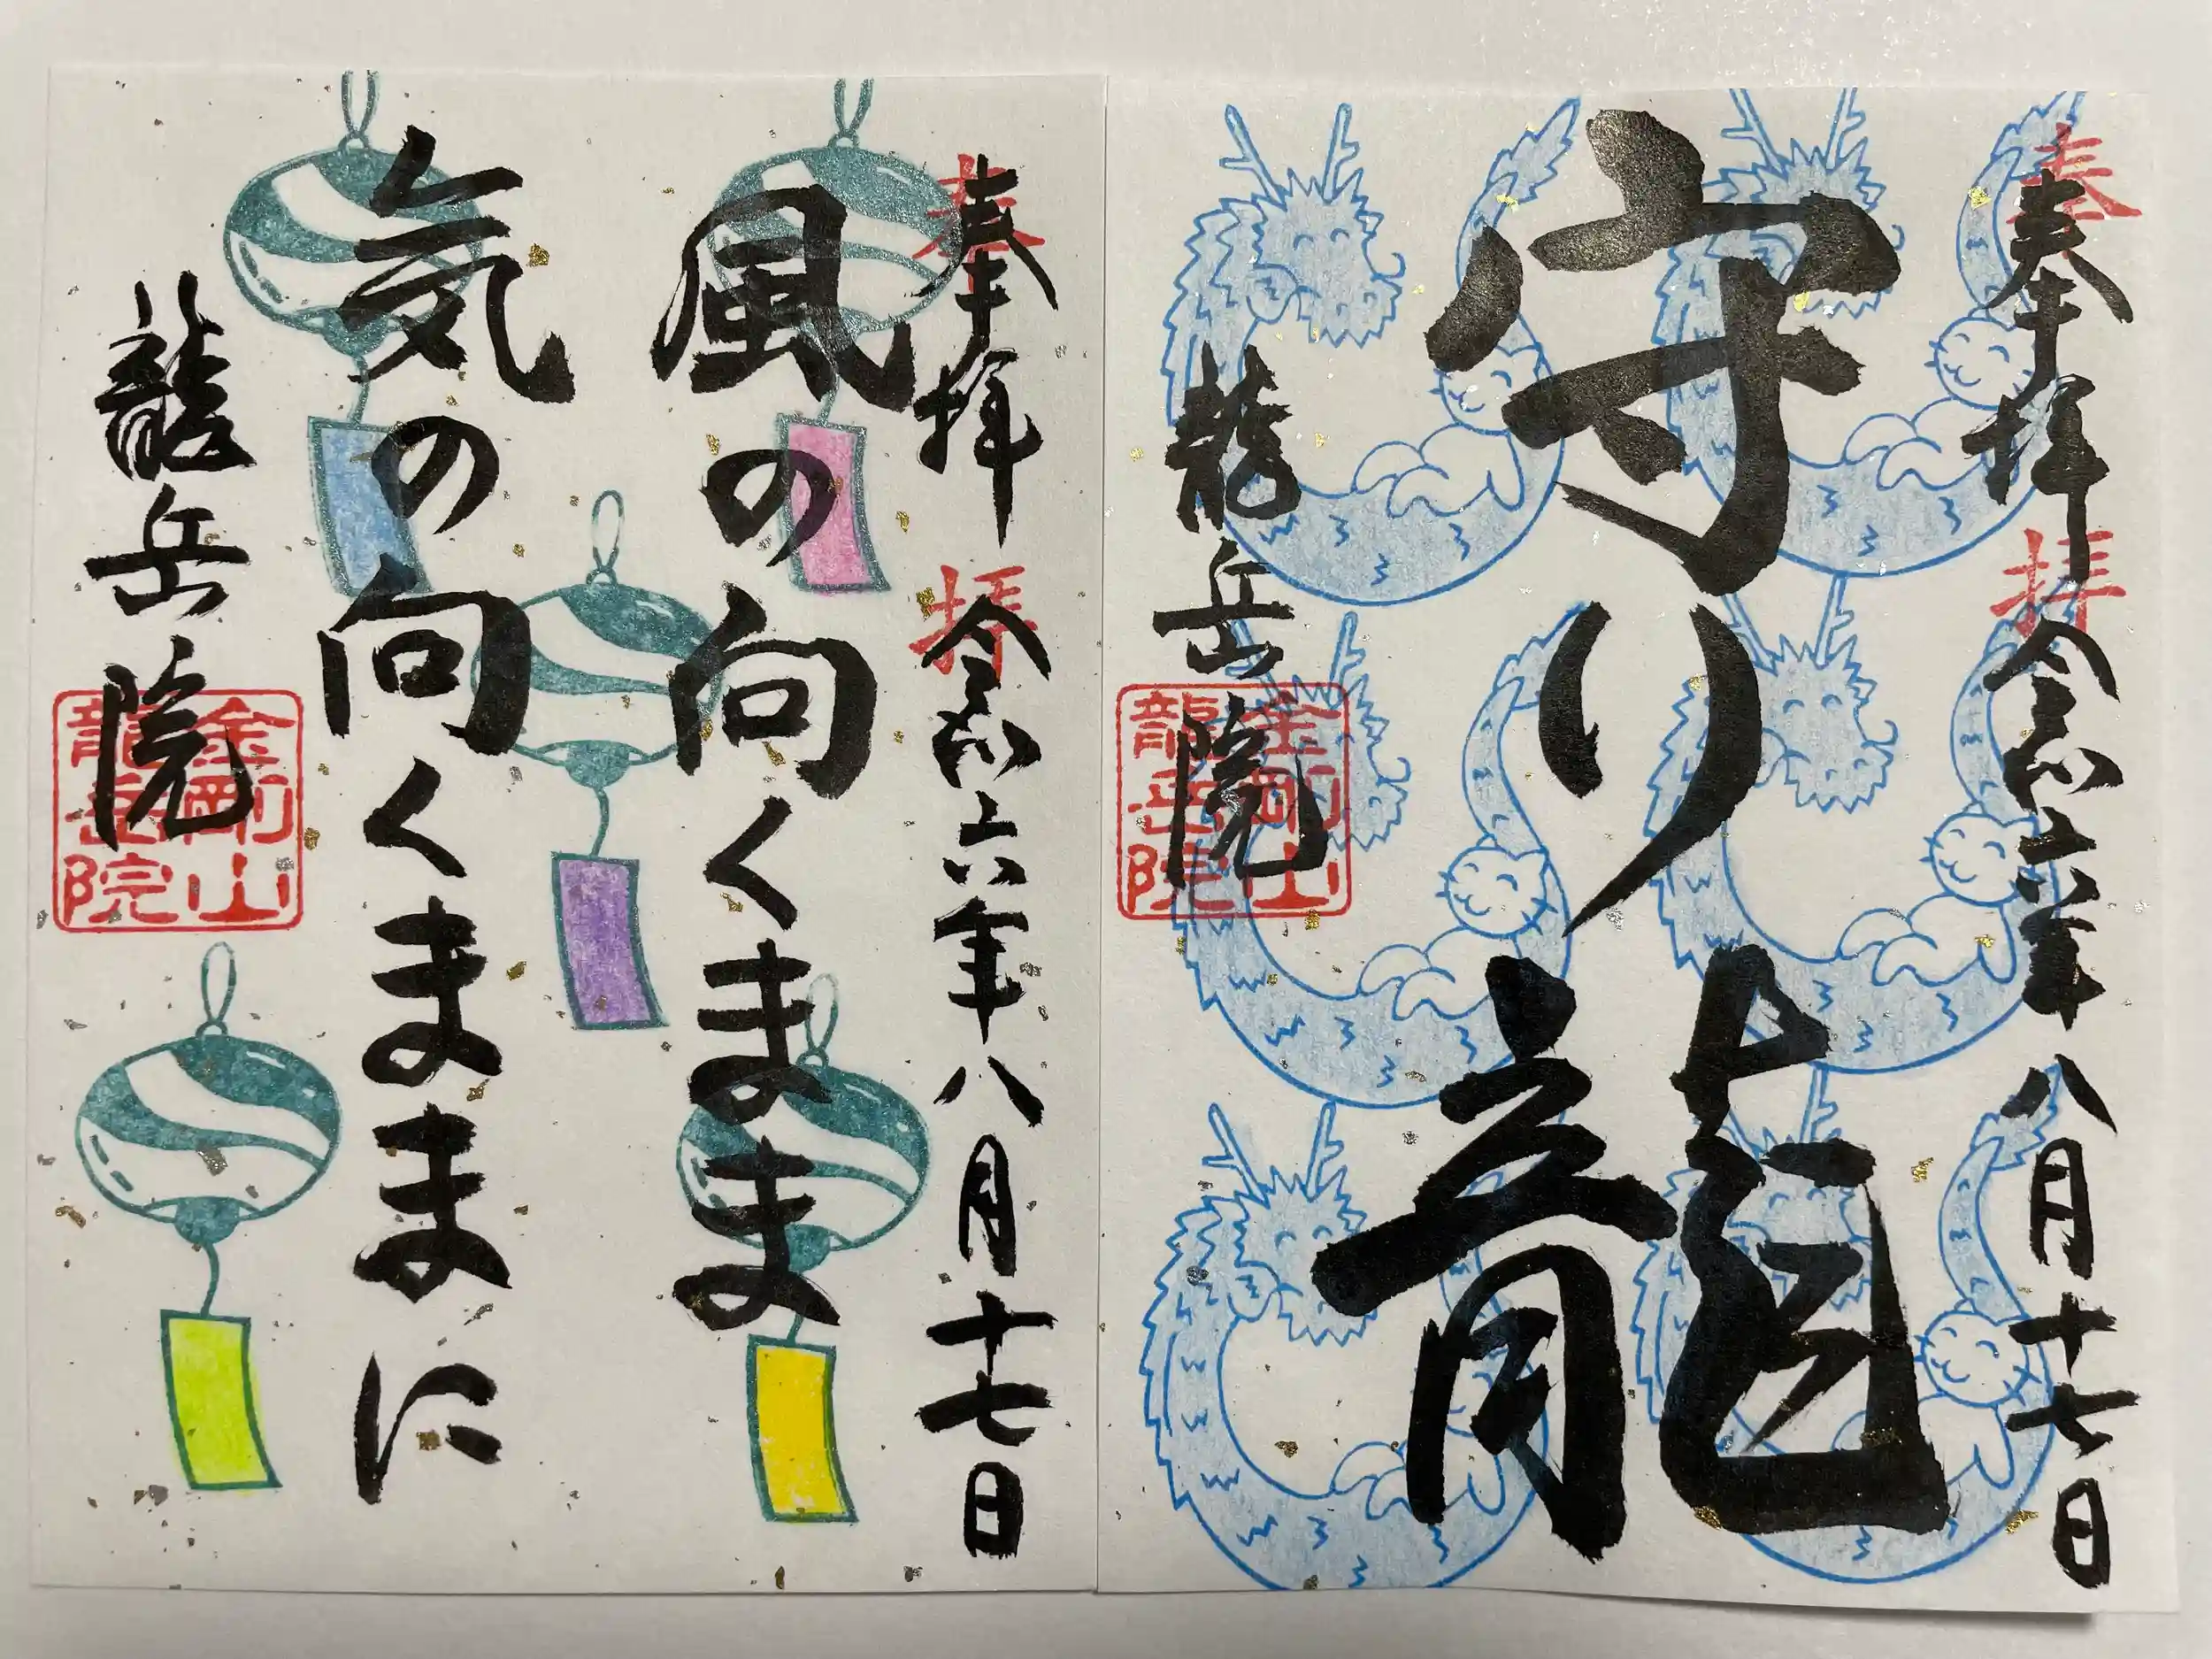 奉拝 令和六年八月十七日
奉拝
守り龍
龍岳院
金剛山
龍岳院
奉拝 令和六年八月十七日
奉拝
風の向くまま
気の向くままに
龍岳院
金剛山
龍岳院